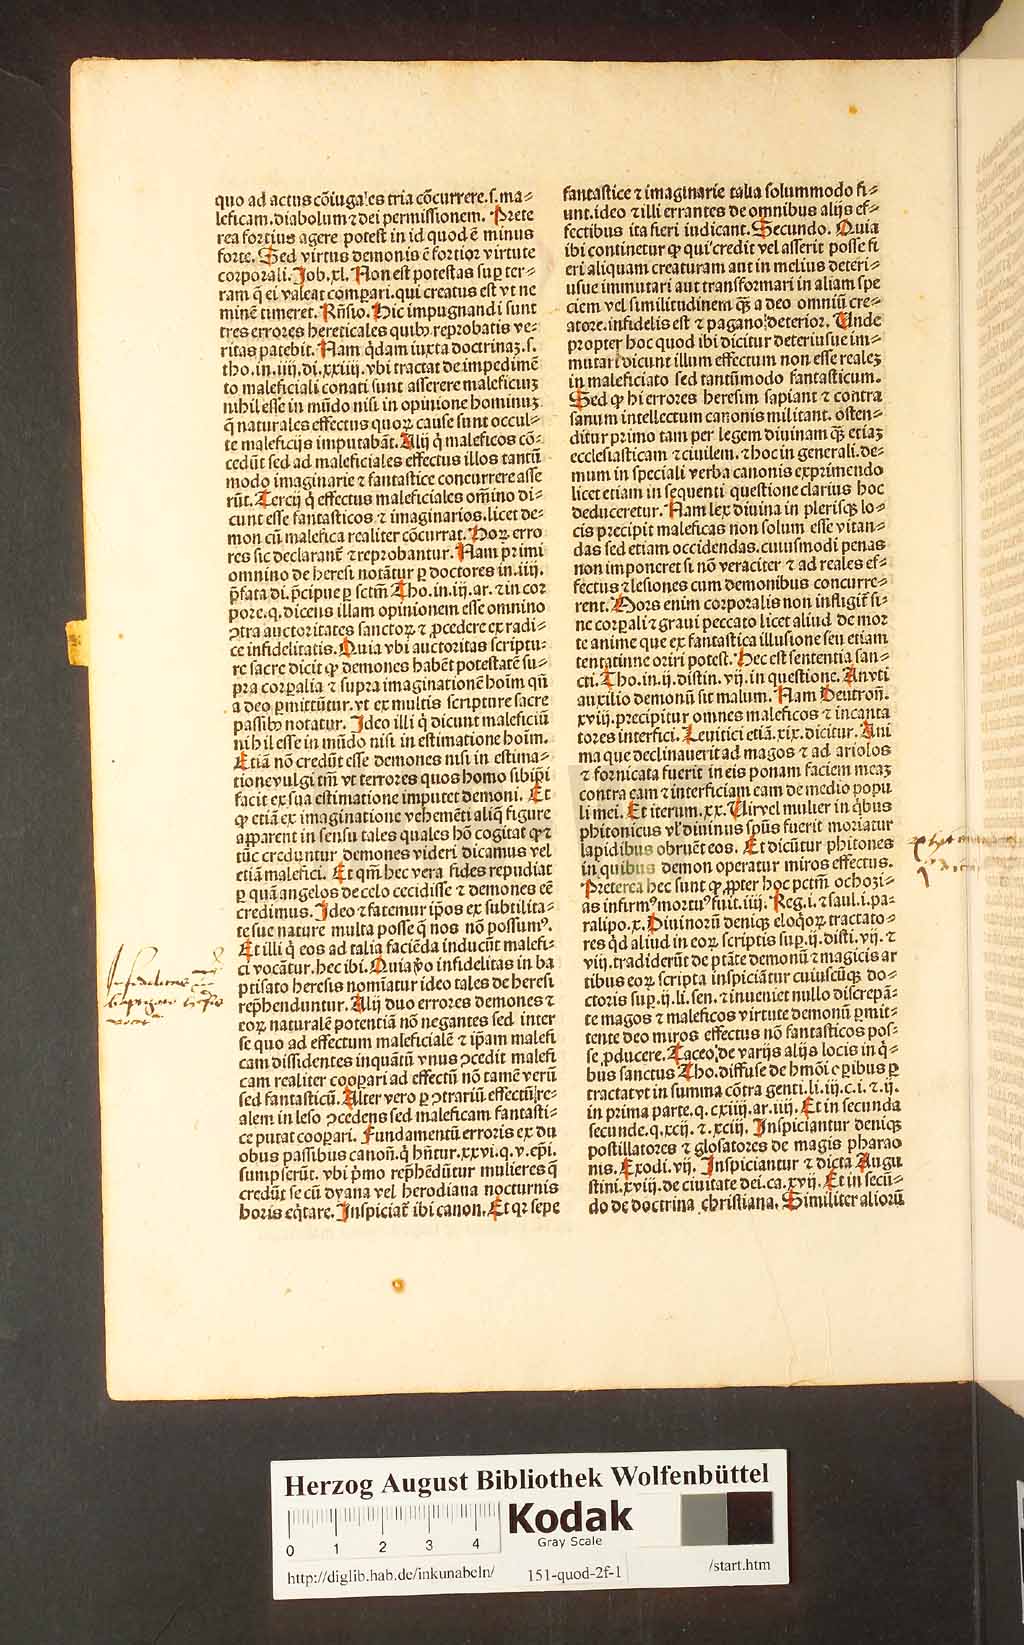 quo ad actus cõiugales tria cõcurrere.ſ.ma⸗
leficam.diabolum ⁊ dei permiſſionem. Prete
rea fortius agere poteſt in id quod ē minus
forte. Sed virtus demonis ē fortior virtute
corporali. Job.xl. Non eſt poteſtas suꝑ ter⸗
ram q̄ ei valeat comꝑari.qui creatus eſt vt ne
minē timeret. Rñſio. Hic impugnandi ſunt
tres errores hereticales quibꝫ reprobatis ve⸗
ritas patebit. Nam q̇dam iuxta doctrinaꝫ.ſ.
tho.in.iiij.di.xxiiij.vbi tractat de impedimē
to maleficiali conati ſunt aſſerere maleficiuꝫ
nihil eſſe in mũdo niſi in opinione hominuꝫ
q̄ naturales effectus quoꝝ cauſe ſunt occul⸗
te maleficijs imputabãt. Alij q̇ maleficos cõ⸗
cedũt ſed ad maleficiales effectus illos tantũ
modo imaginarie ⁊ fantaſtice concurrere aſſe
rũt. Tercij q̇ effectus maleficiales om̃ino di⸗
cunt eſſe fantaſticos ⁊ imaginarios.licet de⸗
mon cũ malefica realiter cõcurrat. Hoꝝ erro
res ſic declaranť ⁊ reprobantur. Nam primi
omnino de hereſi notãtur ꝑ doctores in.iiij.
p̄fata di.p̄cipue ꝑ ſctm̃ Tho.in.iij.ar.⁊ in cor
pore.q.dicens illam opinionem eſſe omnino
ꝯtra auctoritates ſanctoꝝ ⁊ ꝓcedere ex radi⸗
ce infidelitatis. Quia vbi auctoritas ſcriptu⸗
re ſacre dicit ꝙ demones habēt poteſtatē ſu⸗
pra corꝑalia ⁊ ſupra imaginationē hoĩm qñ
a deo ꝑmittũtur.vt ex multis ſcripture ſacre
paſſibꝫ notatur. Ideo illi q̇ dicunt maleficiũ
nihil eſſe in mũdo niſi in eſtimatione hoĩm.
Etiã nõ credũt eſſe demones niſi in eſtima⸗
tione vulgi tm̃ vt terrores quos homo ſibiip̃i
facit ex ſua eſtimatione imputet demoni. Et
ꝙ etiã ex imaginatione vehemēti aliq̄ figure
apparent in ſenſu tales quales hõ cogitat ꝙ ⁊
tũc creduntur demones videri dicamus vel
etiã malefici. Et qm̃ hec vera fides repudiat
ꝑ quã angelos de celo cecidiſſe ⁊ demones eē
credimus. Ideo ⁊ fatemur ip̃os ex ſubtilita⸗
te ſue nature multa poſſe q̄ nos nõ poſſumꝰ.
Et illi q̇ eos ad talia faciēda inducũt malefi⸗
ci vocãtur.hec ibi. Quia ꝟo infidelitas in ba
ptiſato hereſis nomĩatur ideo tales de hereſi
rep̃hendũntur. Alij duo errores demones ⁊
eoꝝ naturalē potentiã nõ negantes ſed inter
ſe quo ad effectum maleficialē ⁊ ip̃am malefi
cam diſſidentes inquãtũ vnus ꝯcedit malefi
cam realiter cooꝑari ad effectũ nõ tamē verũ
ſed fantaſticũ. Alter vero ꝑ ꝯtrariũ effectũ re⸗
alem in leſo ꝯcedens ſed maleficam fantaſti⸗
ce putat cooꝑari. Fundamentũ erroris ex du
obus paſſibus canoñ.q̇ hñtur.xxvi.q.v.ep̃i.
ſumpſerũt. vbi p̃mo rep̃hēdũtur mulieres q̄
credũt ſe cũ dyana vel herodiana nocturnis
horis eq̇tare. Inſpiciať ibi canon. Et qꝛ ſepe
fantaſtice ⁊ imaginarie talia ſolummodo fi⸗
unt.ideo ⁊ illi errantes de omnibus alijs ef⸗
fectibus ita fieri iudicant. Secundo. Quia
ibi continetur ꝙ qui credit vel aſſerit poſſe fi
eri aliquam creaturam aut in melius deteri⸗
uſue immutari aut transformari in aliam ſpe
ciem vel ſimilitudinem q̃ꝫ a deo omniũ cre⸗
atore.infidelis eſt ⁊ pagano deterior. Unde
propter hoc quod ibi dicitur deteriuſue im⸗
mutari dicunt illum effectum non eſſe realeꝫ
in maleficiato ſed tantũmodo fantaſticum.
Sed ꝙ hi errores hereſim ſapiant ⁊ contra
ſanum intellectum canonis militant. oſten⸗
ditur primo tam per legem diuinam q̃ꝫ etiaꝫ
eccleſiaſticam ⁊ ciuilem. ⁊ hoc in generali.de⸗
mum in ſpeciali verba canonis exprimendo
licet etiam in ſequenti queſtione clarius hoc
deduceretur. Nam lex diuina in pleriſqꝫ lo⸗
cis precipit maleficas non ſolum eſſe vitan⸗
das ſed etiam occidendas.cuiuſmodi penas
non imponeret ſi nõ veraciter ⁊ ad reales ef⸗
fectus ⁊ leſiones cum demonibus concurre⸗
rent. Mors enim corporalis non infligiť ſi⸗
ne corꝑali ⁊ graui peccato licet aliud de mor
te anime que ex fantaſtica illuſione ſeu etiam
tentatinne oriri poteſt. Hec eſt ſententia ſan⸗
cti. Tho.in.ij.diſtin.vij.in queſtione. An vti
auxilio demonũ ſit malum. Nam Deutroñ.
xviij.precipitur omnes maleficos ⁊ incanta
tores interfici. Leuitici etiã.xix.dicitur. Ani
ma que declinauerit ad magos ⁊ ad ariolos
⁊ fornicata fuerit in eis ponam faciem meaꝫ
contra eam ⁊ interficiam eam de medio popu
li mei. Et iterum.xx. Uir vel mulier in q̇bus
phitonicus vl̓ diuinus ſpũs fuerit moriatur
lapidibus obruēt eos. Et dicũtur phitones
in quibus demon operatur miros effectus.
Preterea hec ſunt ꝙ ꝓpter hoc pctm̃ ochozi⸗
as infirmꝰ mortuꝰ fuit.iiij. Reg.i.⁊ ſaul.i.pa⸗
ralipo.x. Diuinorũ deniqꝫ eloq̇oꝝ tractato⸗
res q̇d aliud in eoꝝ ſcriptis ſuꝑ.ij.diſti.vij.⁊
viij.tradiderũt de ptãte demonũ ⁊ magicis ar
tibus eoꝝ ſcripta inſpiciãtur cuiuſcũqꝫ do⸗
ctoris ſuꝑ.ij.li.ſen.⁊ inueniet nullo diſcrepã⸗
te magos ⁊ maleficos virtute demonũ ꝑmit⸗
tente deo miros effectus nõ fantaſticos poſ⸗
ſe ꝓducere. Taceo de varijs alijs locis in q̇⸗
bus ſanctus Tho.diffuſe de hmõi oꝑibus ꝑ
tractat vt in ſumma cõtra genti.li.iij.c.i.⁊.ij.
in prima parte.q.cxiiij.ar.iiij. Et in ſecunda
ſecunde.q.xcij.⁊.xciij. Inſpiciantur deniqꝫ
poſtillatores ⁊ gloſatores de magis pharao
nis. Exodi.vij. Inſpiciantur ⁊ dicta Augu
ſtini.xviij.de ciuitate dei.ca.xvij. Et in ſecũ⸗
do de doctrina chriſtiana. Similiter aliorũ
Herzog August Bibliothek Wolfenbüttel
Kodak
Gray Scale
0 1 2 3 4
http://diglib.hab.de/inkunabeln/ 151-quod-2f-1 /start.htm